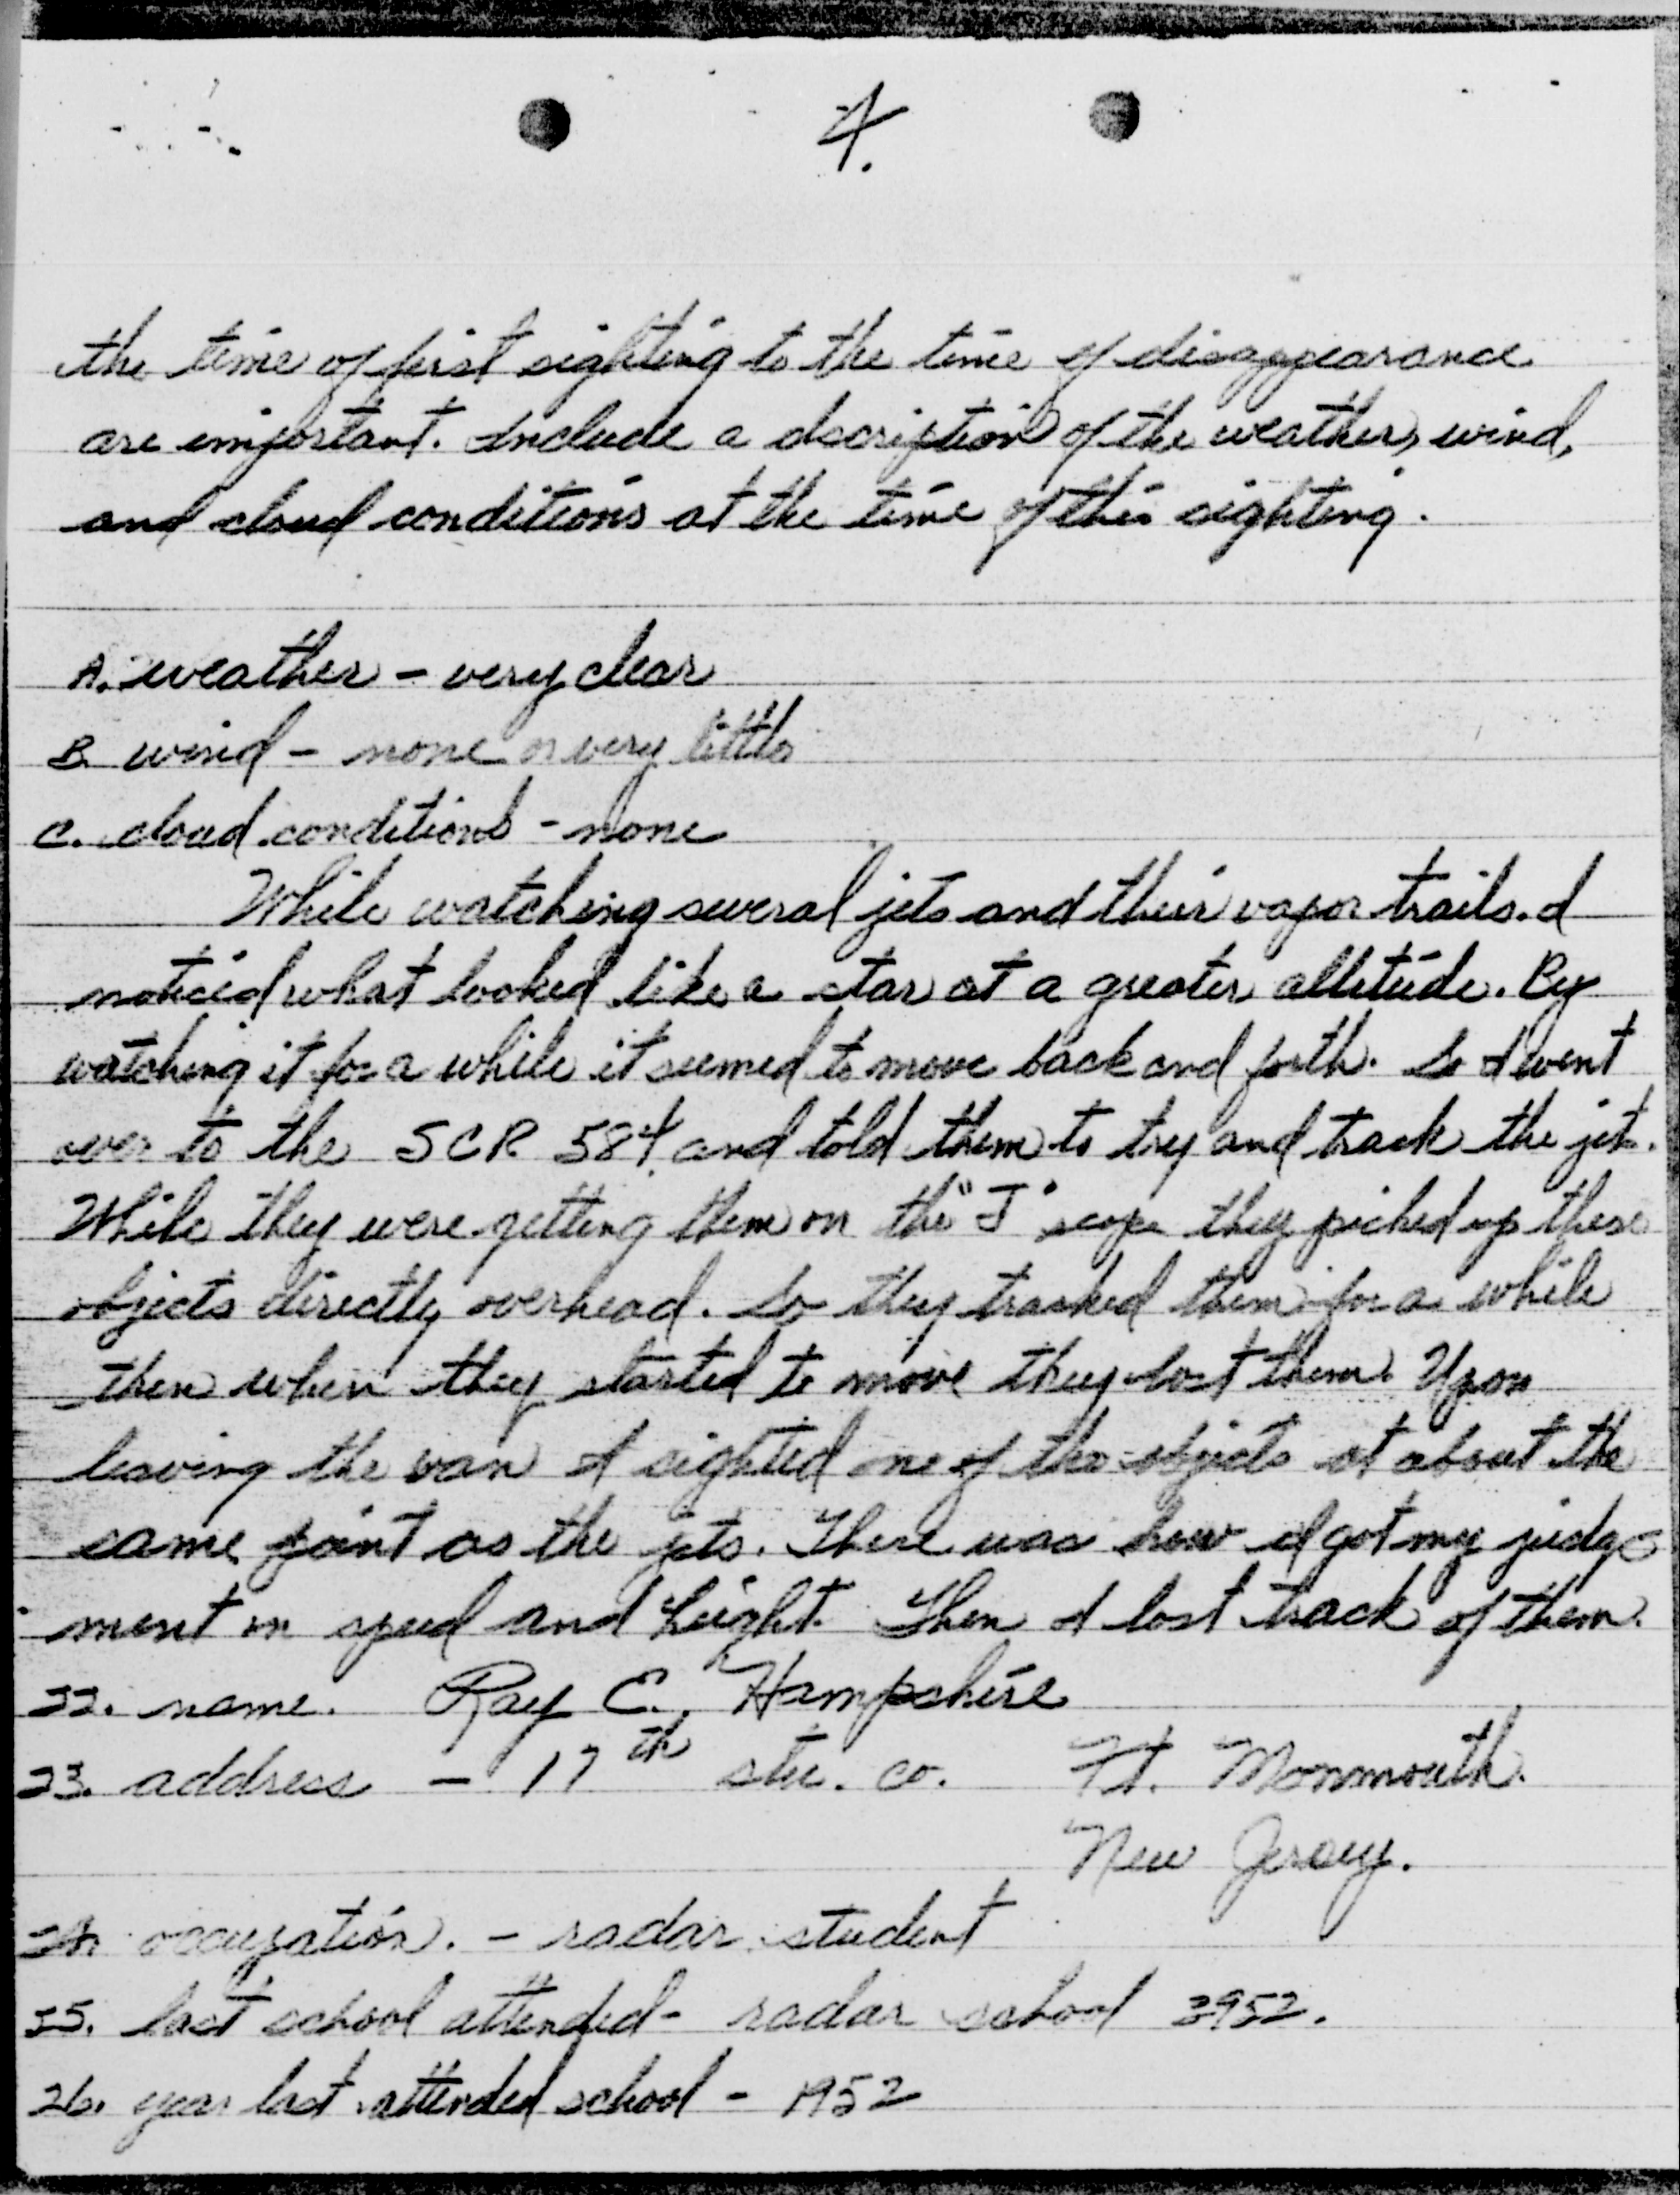 4.
the time of first sighting to the time of disappearance
are important. Include a dscription of the weather, wind,
and cloud conditions at the time of this sighting.
A. weather - very clear
B. wind - none or very little
C. cloud conditions - none
While watching several jets and their vapor trails. I
noticed what looked like a star at a greater altitude. By
watching it for a while it seemed to move back and forth. So I went
over to the SCR 584 and told them to try and track the jets.
While they were getting them on the "J" scope they picked up these
objects directly overhead. So they tracked them for a while
then when they started to move they lost them. Upon
leaving the van I sighted one of the objects at about the
same point as the jets. There was how I got my judge
ment on speed and height. Then I lost track of them.
22. name. Ray C. Hampshire
23. address - 17th stu. co. Ft. Monmouth.
New Jersey.
24. occupation. - radar student
25. last school attended - radar school 3952.
26. year last attended school - 1952